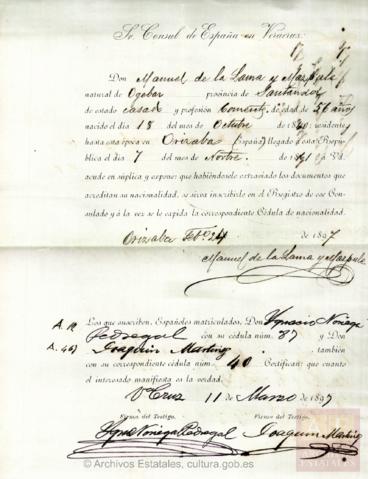 Sr. Consul de España en Veracruz:
Don Manuel de la Lama y
natural de provincia de Santander
de estado casado y profesión Comerct. de edad de 56 años
nacido el día 18 del mes de Octubre de 1840: residente
hasta esta época en Orizaba (España) llegado á esta Repú-
blica el día 7 del mes de Novbre. de á Vd.
acude en súplica y expone: que habiéndosele extraviado los documentos que
acreditan su nacionalidad, se sirva inscribirlo en el Registro de ese Con-
sulado y á la vez se le expida la correspondiente Cédula de nacionalidad.
Orizaba Feb.º 24 de 1897
Manuel de la Lama y
Los que suscriben, Españoles matriculados, Don Ygnacio Noriega
Pedregal con su cédula núm. 37 y Don
Joaquin Martinez también
con su correspondiente cédula núm. 40 Certifican: que cuanto
el interesado manifiesta es la verdad.
V. Cruz 11 de Marzo de 1897
Firma del Testigo. Firma del Testigo.
Ygno Noriega Pedregal Joaquin Martinez
© Archivos Estatales, cultura.gob.es
ESTATALES